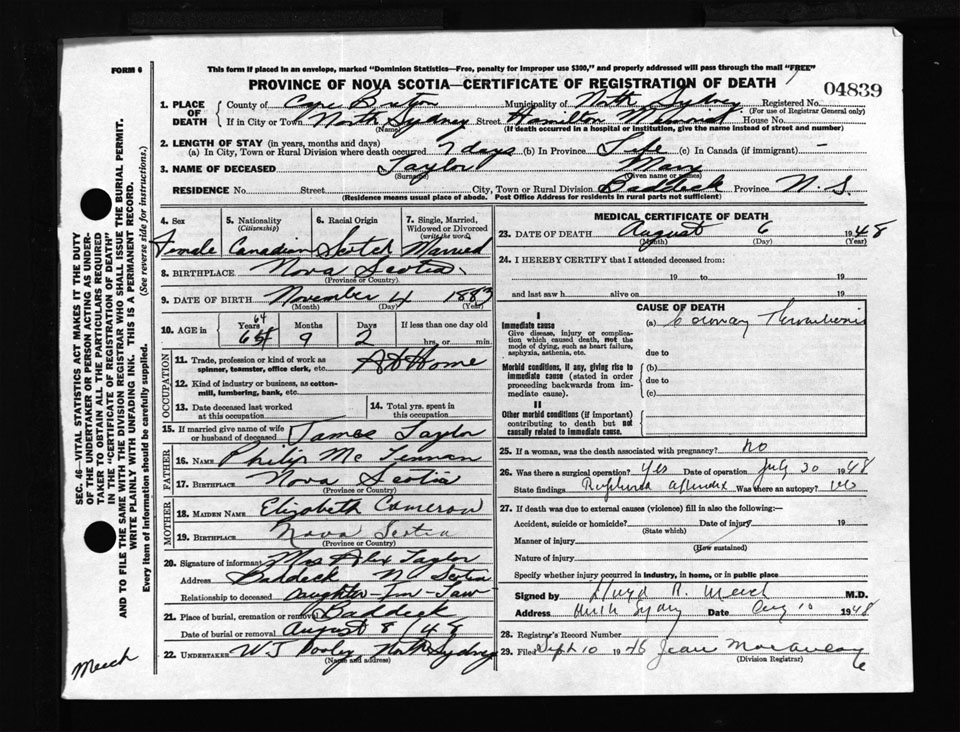 FORM 6
This form if placed in an envelope, marked "Dominion Statistics—Free, penalty for improper use $300," and properly addressed will pass through the mail "FREE"
PROVINCE OF NOVA SCOTIA—CERTIFICATE OF REGISTRATION OF DEATH
04839
1. PLACE OF DEATH
County of Cape Breton Municipality of North Sydney Registered No.
(For use of Registrar General only)
If in City or Town North Sydney Street Hamilton Memorial House No.
(Name) (If death occurred in a hospital or institution, give the name instead of street and number)
2. LENGTH OF STAY (in years, months and days)
(a) In City, Town or Rural Division where death occurred 7 days (b) In Province Life (c) In Canada (if immigrant) -
3. NAME OF DECEASED Taylor Mary
(Surname) (Given name or names)
RESIDENCE No. Street City, Town or Rural Division Baddeck Province N.S
(Residence means usual place of abode. Post Office Address for residents in rural parts not sufficient)
4. Sex
Female
5. Nationality
(Citizenship)
Canadian
6. Racial Origin
Scotch
7. Single, Married, Widowed or Divorced
(write the word)
Married
8. BIRTHPLACE Nova Scotia
(Province or Country)
9. DATE OF BIRTH November 4 1883
(Month) (Day) (Year)
10. AGE in
Years 64
Months 9
Days 2
If less than one day old
hrs. or min.
OCCUPATION
11. Trade, profession or kind of work as spinner, teamster, office clerk, etc. At Home
12. Kind of industry or business, as cotton-mill, lumbering, bank, etc.
13. Date deceased last worked at this occupation
14. Total yrs. spent in this occupation
15. If married give name of wife or husband of deceased James Taylor
FATHER
16. NAME Philip Mc
17. BIRTHPLACE Nova Scotia
(Province or Country)
MOTHER
18. MAIDEN NAME Elizabeth Cameron
19. BIRTHPLACE Nova Scotia
(Province or Country)
20. Signature of informant Mrs Alex Taylor
Address Baddeck N. Scotia
Relationship to deceased Daughter-in-law
21. Place of burial, cremation or removal Baddeck
Date of burial or removal August 8 / 48
22. UNDERTAKER W J Dooley North Sydney
(Name and address)
MEDICAL CERTIFICATE OF DEATH
23. DATE OF DEATH August 6 1948
(Month) (Day) (Year)
24. I HEREBY CERTIFY that I attended deceased from:
19 to 19
and last saw h alive on 19
CAUSE OF DEATH
I
Immediate cause
Give disease, injury or complication which caused death, not the mode of dying, such as heart failure, asphyxia, asthenia, etc.
(a) Coronary Thrombosis
due to
Morbid conditions, if any, giving rise to immediate cause (stated in order proceeding backwards from immediate cause)
(b)
due to
(c)
II
Other morbid conditions (if important) contributing to death but not causally related to immediate cause.
25. If a woman, was the death associated with pregnancy? no
26. Was there a surgical operation? Yes Date of operation July 30 1948
State findings Ruptured appendix Was there an autopsy? no
27. If death was due to external causes (violence) fill in also the following:—
Accident, suicide or homicide? Date of injury 19
(State which)
Manner of injury
(How sustained)
Nature of injury
Specify whether injury occurred in industry, in home, or in public place
Signed by Lloyd R. Meech M.D.
Address North Sydney Date Aug 10 1948
28. Registrar's Record Number
29. Filed Sept 10 1948 Jean
(Division Registrar)
SEC. 46—VITAL STATISTICS ACT MAKES IT THE DUTY
OF THE UNDERTAKER OR PERSON ACTING AS UNDERTAKER TO OBTAIN ALL THE PARTICULARS REQUIRED
IN THE "CERTIFICATE OF REGISTRATION OF DEATH"
AND TO FILE THE SAME WITH THE DIVISION REGISTRAR WHO SHALL ISSUE THE BURIAL PERMIT.
WRITE PLAINLY WITH UNFADING INK. THIS IS A PERMANENT RECORD.
Every item of information should be carefully supplied. (See reverse side for instructions.)
Meech